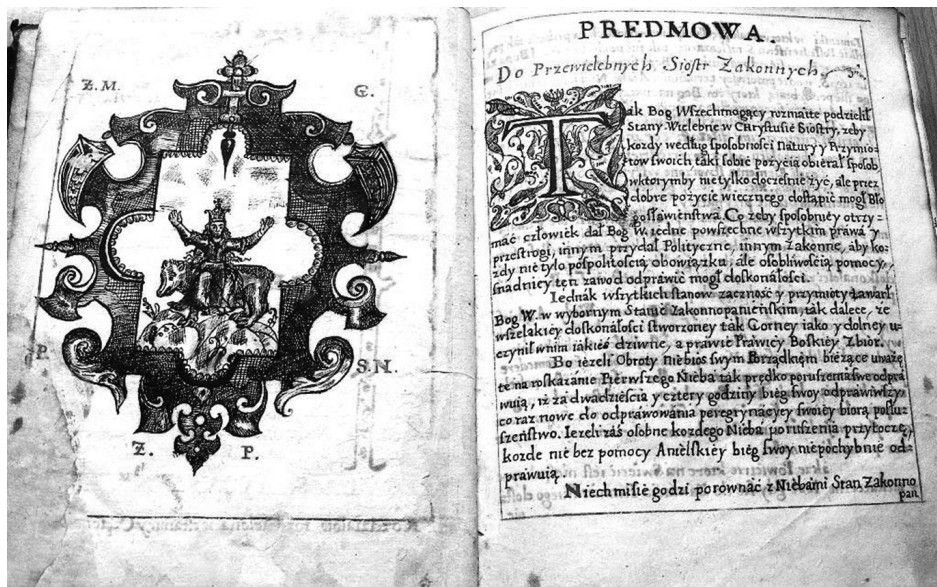 Z.M.
G.
P.
S.N.
Z.
P.
PREDMOWA.
Do Przewielebnych Siostr Zakonnych
Tak Bog Wszechmogący rozmaite podzielił
Stany. Wielebne w Chrystusie Siostry, żeby
kozdy według sposobności Natury y Przymio-
tow swoich taki sobie pożycia obierał sposob
wktorymby nie tylko docześnie żyć, ale przez
dobre pożycie wiecznego dostąpić mogł Bło
gosławieństwa. Co żeby sposobniey otrzy-
mać człowiek dał Bog W. iedne powszechne wszytkim prawa y
przestrogi, innym przydał Polityczne, innym Zakonne, aby ko-
zdy nie tylo pospolitością obowiązku, ale osobliwością pomocy,
snadniey ten zawod odprawić mogł doskonałości.
Iednak wszytkich stanow zacność y przymioty zawarł
Bog W. w wybornym Stanie Zakonnopanieńskim, tak dalece, że
wszelakiey doskonałości stworzoney tak Gorney iako y dolney u-
czynił wnim iakieś dziwne, a prawie Prawicy Boskiey Zbior.
Bo ieżeli Obroty niebios swym Porządkiem bieżące uważę
te na roskazanie Pierwszego Nieba tak prędko poruszenia swe odpra
wuią, iż za dwadzieścia y cztery godziny bieg swoy odprawiwszy,
co raz nowe do odprawowania peregrynacyey swoiey biorą posłu-
szeństwo. Iezeli záś osobne kozdego Nieba poruszenia przytoczę,
kozde nie bez pomocy Anielskiey bieg swoy niepochybnie od-
prawuią.
Niech mi sie godzi porownać z Niebami Stan Zakonno
pan